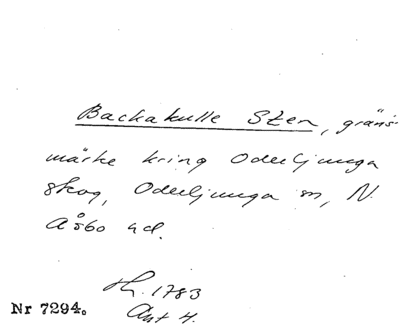 Backakulle Sten, gräns-
märke kring Oderljunga
skog, Oderljunga sn, N.
Åsbo hd.
Lh. 1783
Akt 4.
Nr 7294.